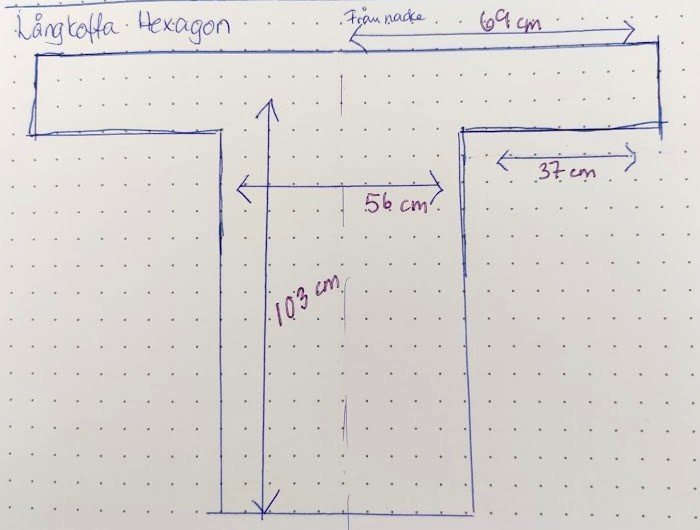 Långkofta Hexagon
Från nacke
69 cm
37 cm
56 cm
103 cm